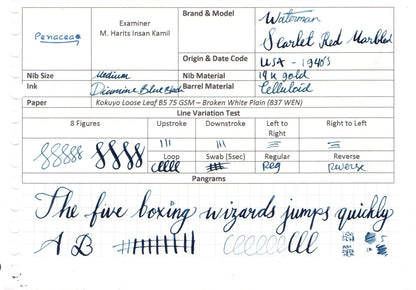 Penaceae
Examiner
M. Harits Insan Kamil
Brand & Model
Waterman
Scarlet Red Marbled
Origin & Date Code
USA - 1940's
Nib Size
Medium
Nib Material
14k gold
Ink
Diamine Blue Black
Barrel Material
Celluloid
Paper
Kokuyo Loose Leaf B5 75 GSM – Broken White Plain (837 WEN)
Line Variation Test
8 Figures
Upstroke
Downstroke
Left to Right
Right to Left
Loop
Swab (5sec)
Regular
Reverse
Reg
Reverse
Pangrams
The five boxing wizards jumps quickly
A B